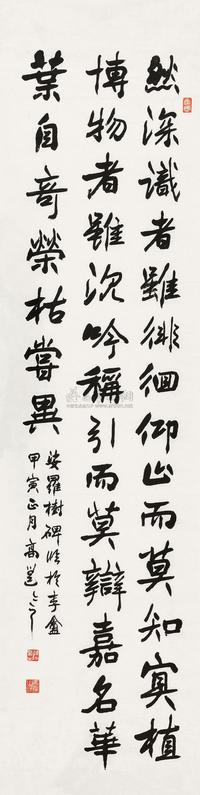 然深識者雖徘徊仰止而莫知冥植
博物者雖沈吟稱引而莫辯嘉名華
葉自奇榮枯嘗異
娑羅樹碑
甲寅正月高邕之